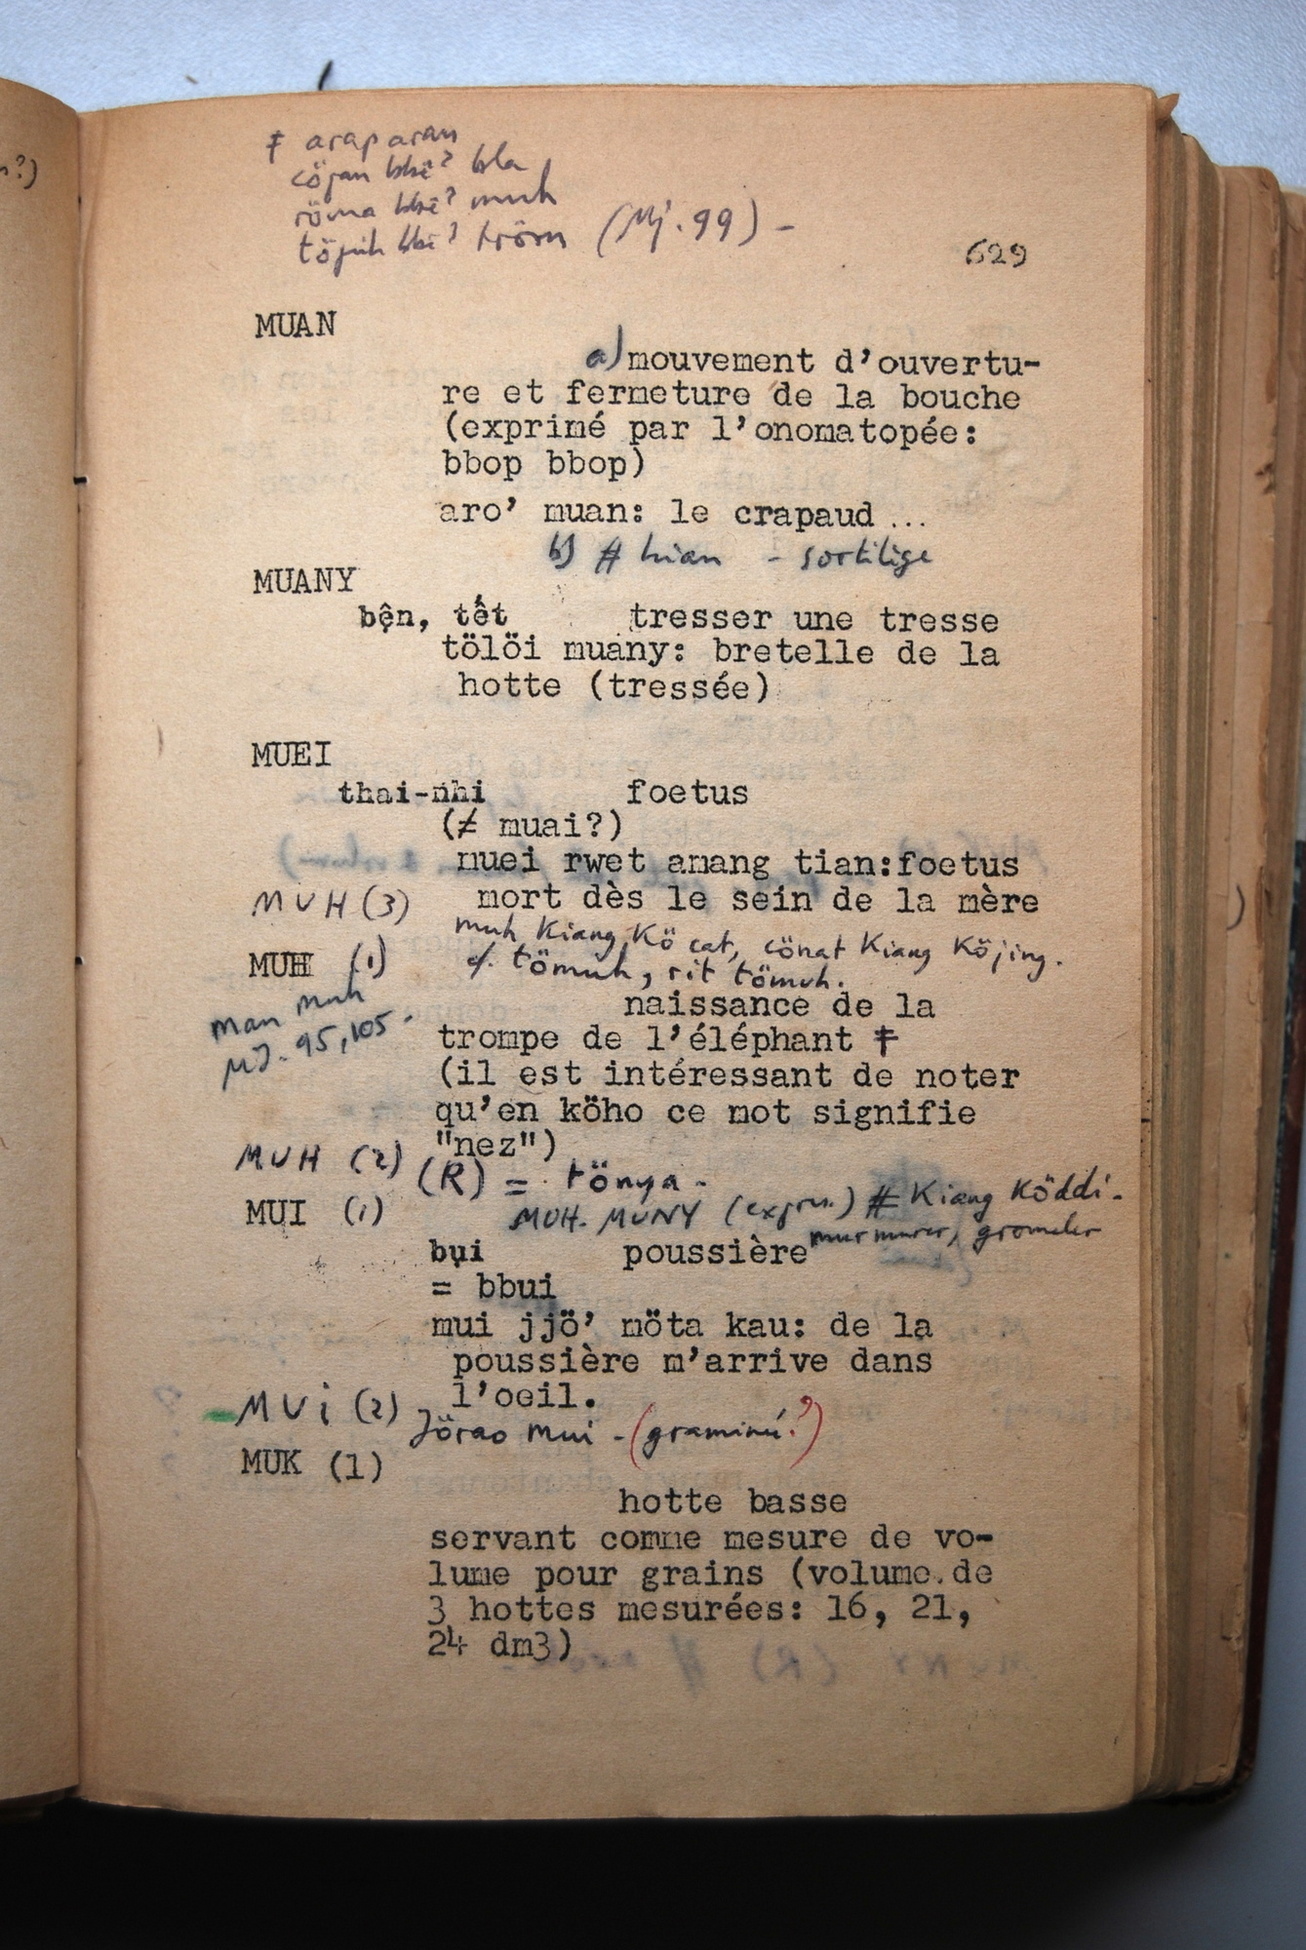 ‡ araparan
cöjan bbĕ? bla
röma bbĕ? muh
töjuh bbĕ? tröm (Mj. 99) -
629
MUAN
a) mouvement d'ouvertu-
re et fermeture de la bouche
(exprimé par l'onomatopée:
bbop bbop)
aro' muan: le crapaud ...
b) # hian - sortilège
MUANY
bện, tết tresser une tresse
tölöi muany: bretelle de la
hotte (tressée)
MUEI
thai-nhi foetus
(≠ muai?)
muei rwet amang tian:foetus
mort dès le sein de la mère
MUH (3) muh Kiang Kö cat, cönat Kiang Köjing.
cf. tömuh, rit tömuh.
MUH (1)
man muh
MJ. 95, 105.
naissance de la
trompe de l'éléphant ‡
(il est intéressant de noter
qu'en köho ce mot signifie
"nez")
MUH (2) (R) = tönya -
MUH. MUNY (expres.) # Kiang Köddi -
murmurer, gromeler
MUI (1)
bụi poussière
= bbui
mui jjö' möta kau: de la
poussière m'arrive dans
l'oeil.
MUI (2) Jörao mui - (graminé?)
MUK (1)
hotte basse
servant comme mesure de vo-
lume pour grains (volume de
3 hottes mesurées: 16, 21,
24 dm3)